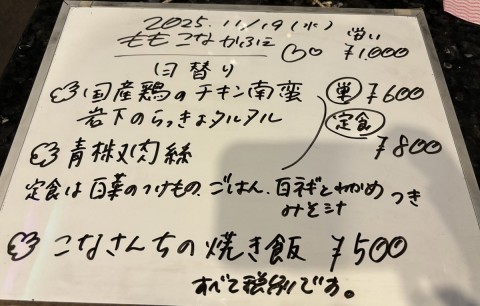 2025. 11/19(水)
ももこなかふぇ
¥1,000
日替り
国産鶏のチキン南蛮 単 ¥600
岩下のらっきょタルタル 定食
青椒肉絲 ¥800
定食は白菜のつけもの、ごはん、白ネギとわかめ みそ汁 つき
こなさんちの焼き飯 ¥500
すべて税別です。